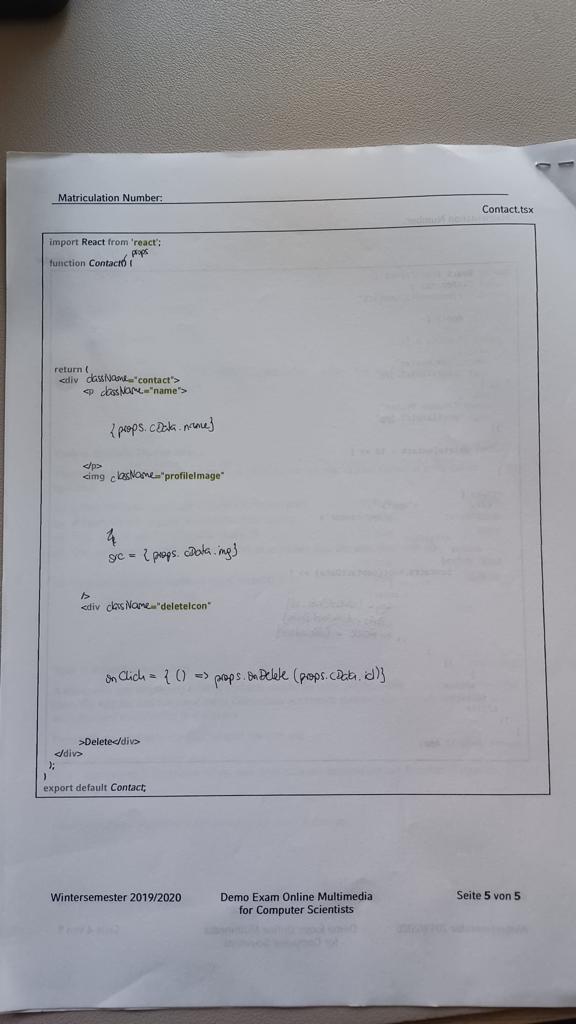 Matriculation Number:
Contact.tsx
import React from 'react';
props
function Contact() {
return (
<div className="contact">
<p className="name">
{props.cData.name}
</p>
<img className="profileImage"
src = {props.cData.img}
/>
<div className="deleteIcon"
onClick = {() => props.onDelete (props.cData.id)}
>Delete</div>
</div>
);
}
export default Contact;
Wintersemester 2019/2020
Demo Exam Online Multimedia
for Computer Scientists
Seite 5 von 5